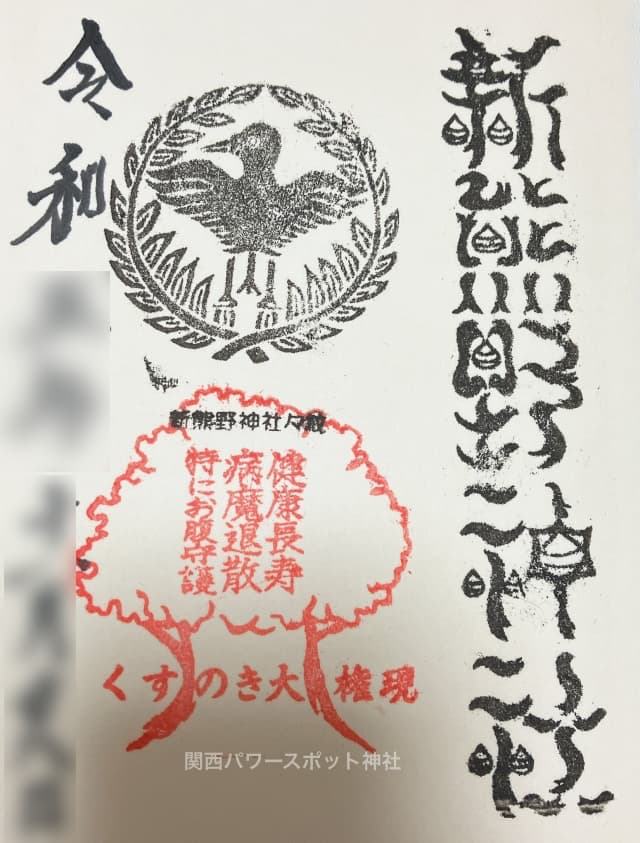 新熊野神社
新熊野神社々
健康長寿
病魔退散
特にお腹守護
くすのき大権現
令和
関西パワースポット神社